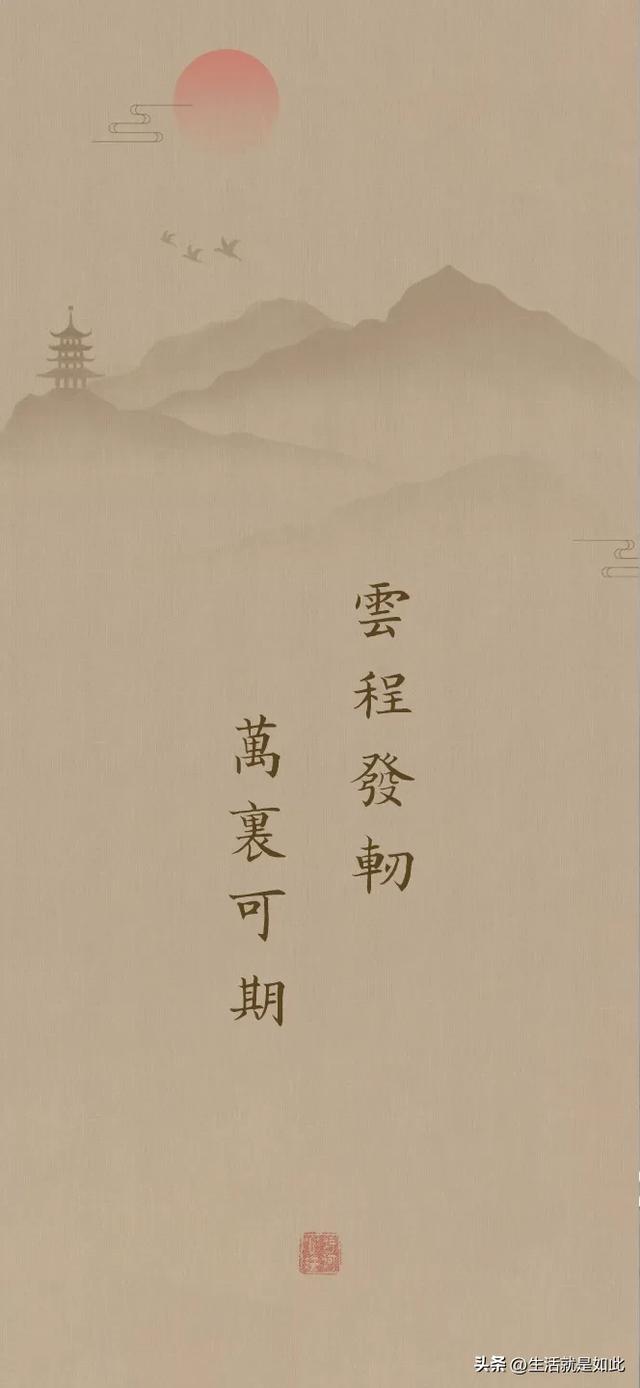 雲程發軔
萬裏可期
头条 @生活就是如此